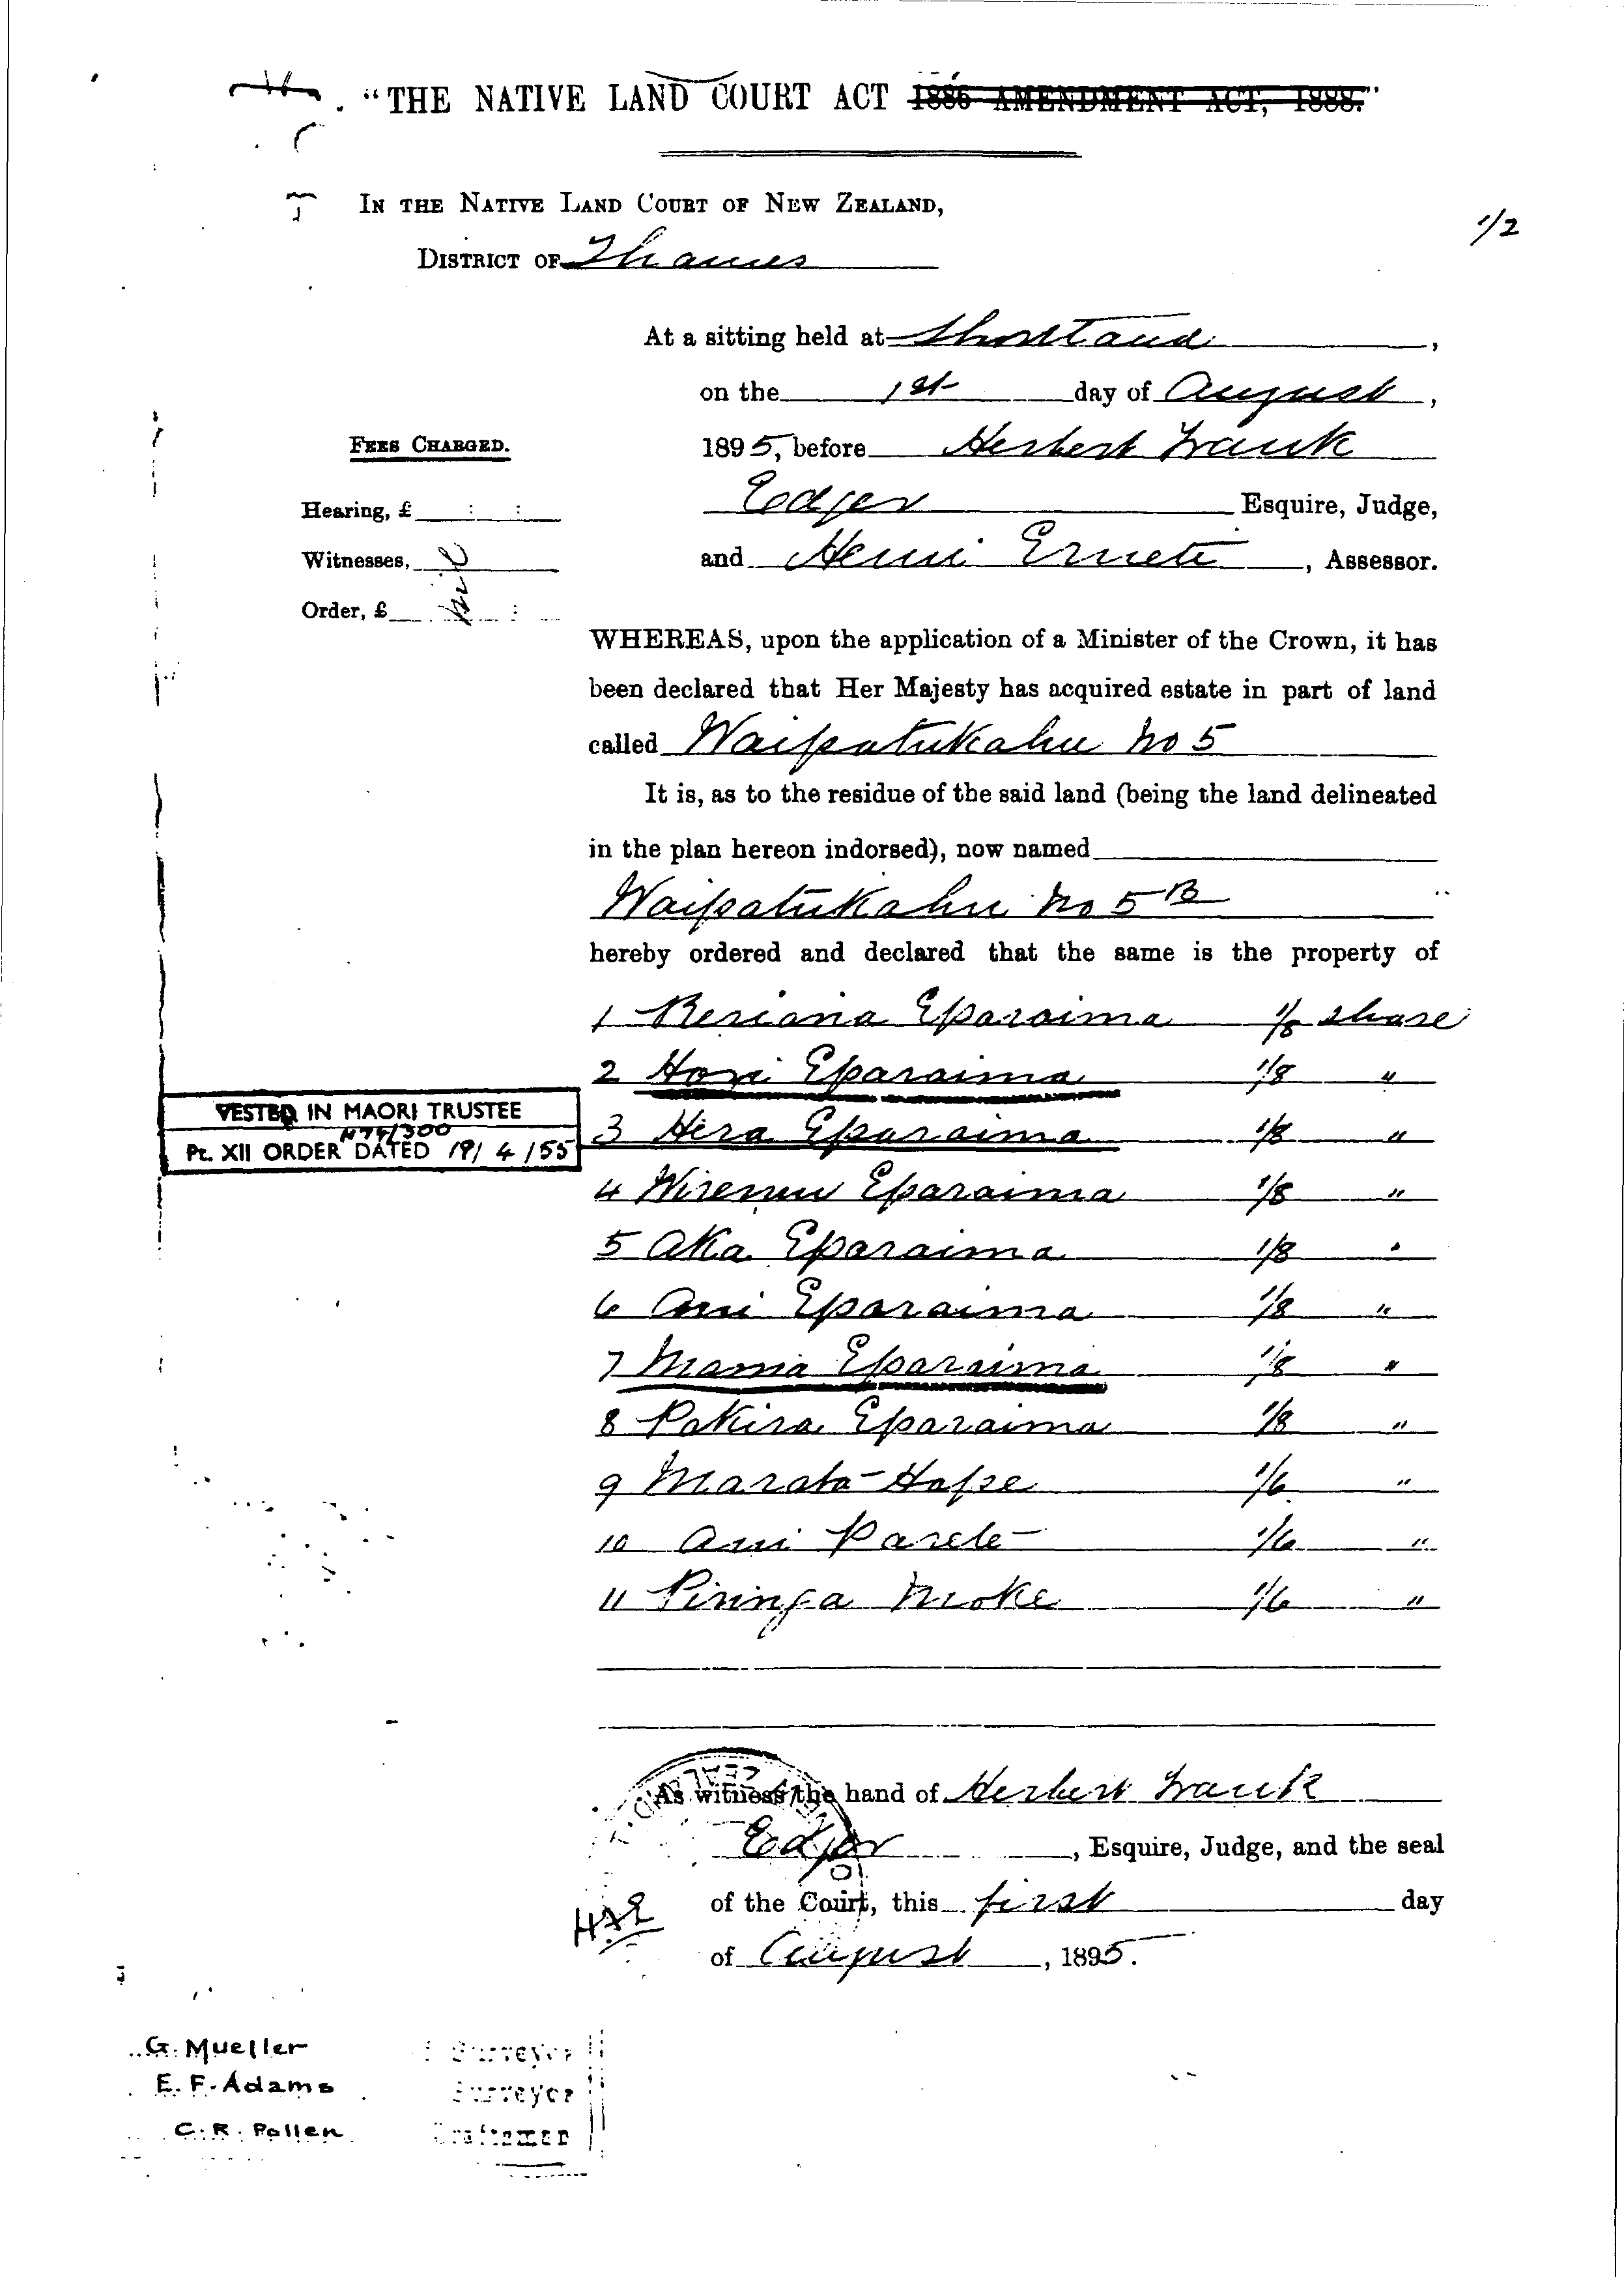 "THE NATIVE LAND COURT ACT 1886 AMENDMENT ACT, 1888."
IN THE NATIVE LAND COURT OF NEW ZEALAND,
1/2
DISTRICT OF Thames
At a sitting held at Shortland,
on the 1st day of August,
FEES CHARGED.
1895, before Herbert Frank
Edger Esquire, Judge,
Hearing, £ : :
and Hemi Erueti, Assessor.
Witnesses, nil
Order, £ :
WHEREAS, upon the application of a Minister of the Crown, it has
been declared that Her Majesty has acquired estate in part of land
called Waipatukahu No 5
It is, as to the residue of the said land (being the land delineated
in the plan hereon indorsed), now named
Waipatukahu No 5B
hereby ordered and declared that the same is the property of
1 Reriana Eparaima 1/8 share
2 Hori Eparaima 1/8 "
VESTED IN MAORI TRUSTEE
3 Hera Eparaima 1/8 "
Pt. XII ORDER DATED 19/4/55
4 Wiremu Eparaima 1/8 "
5 Aka Eparaima 1/8 "
6 Ani Eparaima 1/8 "
7 Mania Eparaima 1/8 "
8 Pakira Eparaima 1/8 "
9 Marata Hape 1/6 "
10 Ani Parete 1/6 "
11 Piringa Moke 1/6 "
As witness the hand of Herbert Frank
Edger, Esquire, Judge, and the seal
of the Court, this first day
of August, 1895.
G. Mueller Surveyor
E. F. Adams Surveyor
C. R. Pollen Draftsman